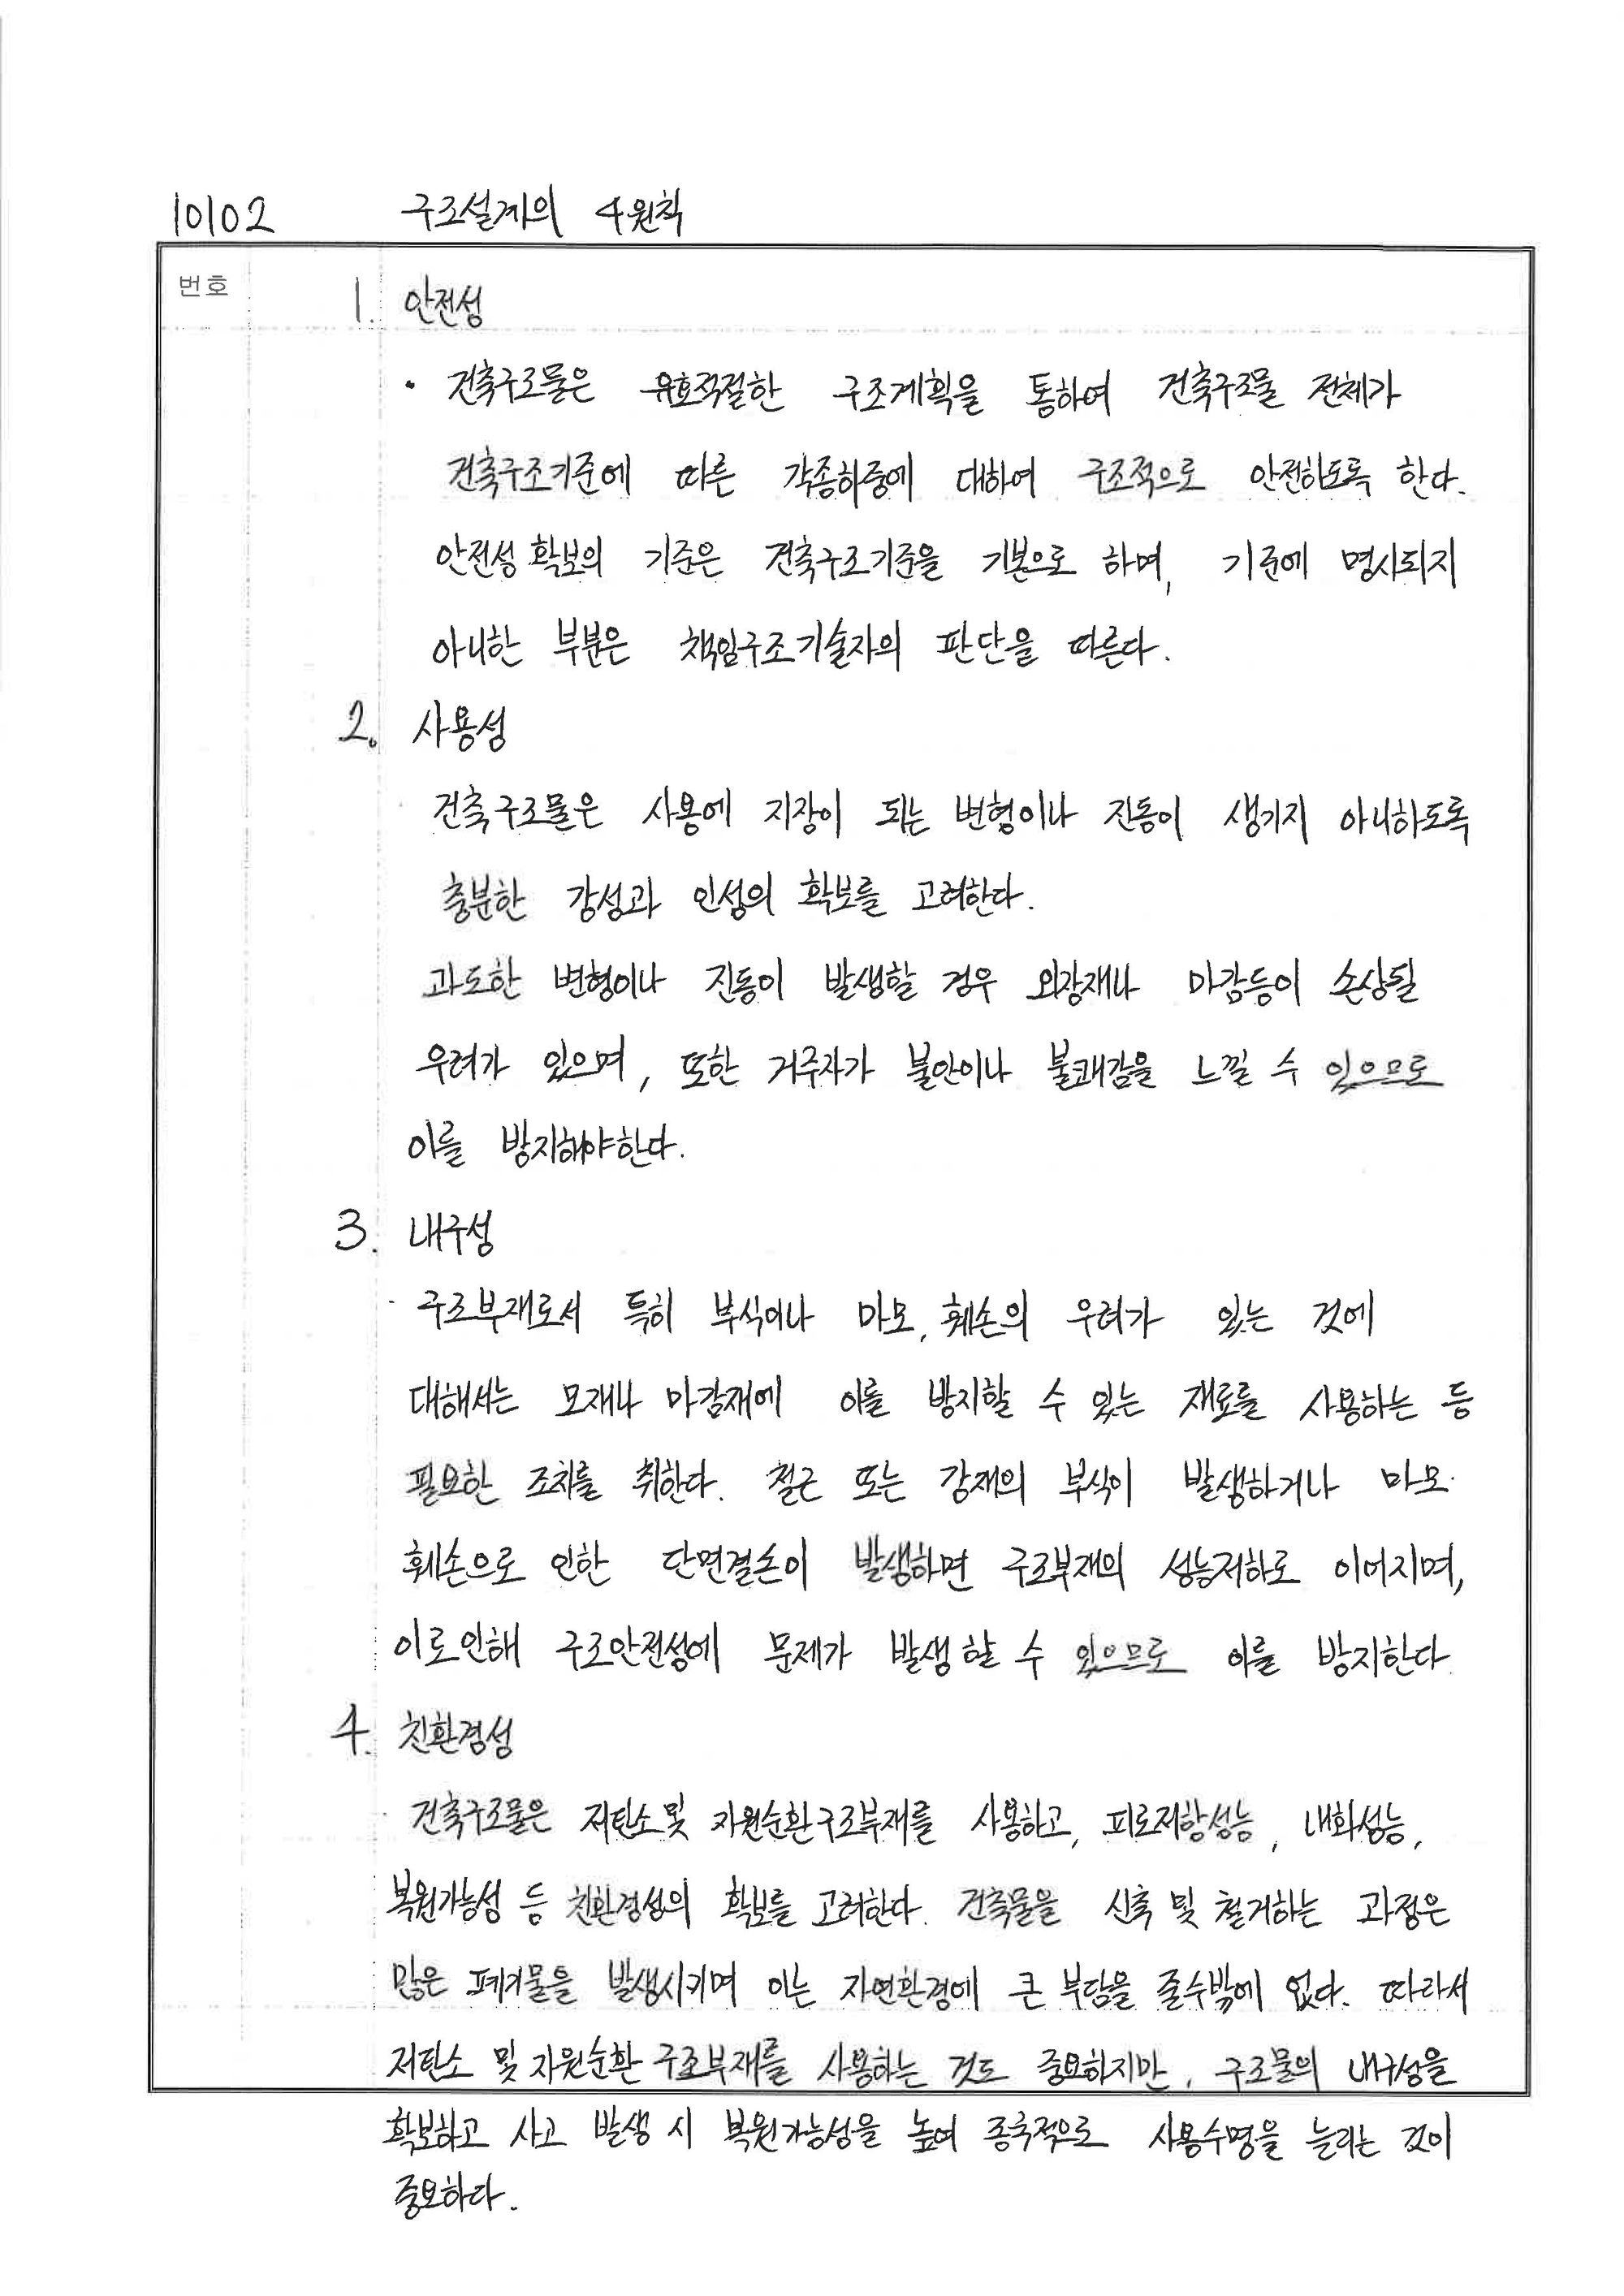 10102 구조설계의 4원칙
번호 1. 안전성
· 건축구조물은 유효적절한 구조계획을 통하여 건축구조물 전체가
건축구조기준에 따른 각종하중에 대하여 구조적으로 안전하도록 한다.
안전성 확보의 기준은 건축구조기준을 기본으로 하며, 기준에 명시되지
아니한 부분은 책임구조기술자의 판단을 따른다.
2. 사용성
· 건축구조물은 사용에 지장이 되는 변형이나 진동이 생기지 아니하도록
충분한 강성과 인성의 확보를 고려한다.
과도한 변형이나 진동이 발생할 경우 외장재나 마감등이 손상될
우려가 있으며, 또한 거주자가 불안이나 불쾌감을 느낄 수 있으므로
이를 방지해야한다.
3. 내구성
· 구조부재로서 특히 부식이나 마모, 훼손의 우려가 있는 것에
대해서는 모재나 마감재에 이를 방지할 수 있는 재료를 사용하는 등
필요한 조치를 취한다. 철근 또는 강재의 부식이 발생하거나 마모·
훼손으로 인한 단면결손이 발생하면 구조부재의 성능저하로 이어지며,
이로인해 구조안전성에 문제가 발생할 수 있으므로 이를 방지한다.
4. 친환경성
· 건축구조물은 저탄소 및 자원순환 구조부재를 사용하고, 피로저항성능, 내화성능,
복원가능성 등 친환경성의 확보를 고려한다. 건축물을 신축 및 철거하는 과정은
많은 폐기물을 발생시키며 이는 자연환경에 큰 부담을 줄수밖에 없다. 따라서
저탄소 및 자원순환 구조부재를 사용하는 것도 중요하지만, 구조물의 내구성을
확보하고 사고 발생 시 복원가능성을 높여 종국적으로 사용수명을 늘리는 것이
중요하다.